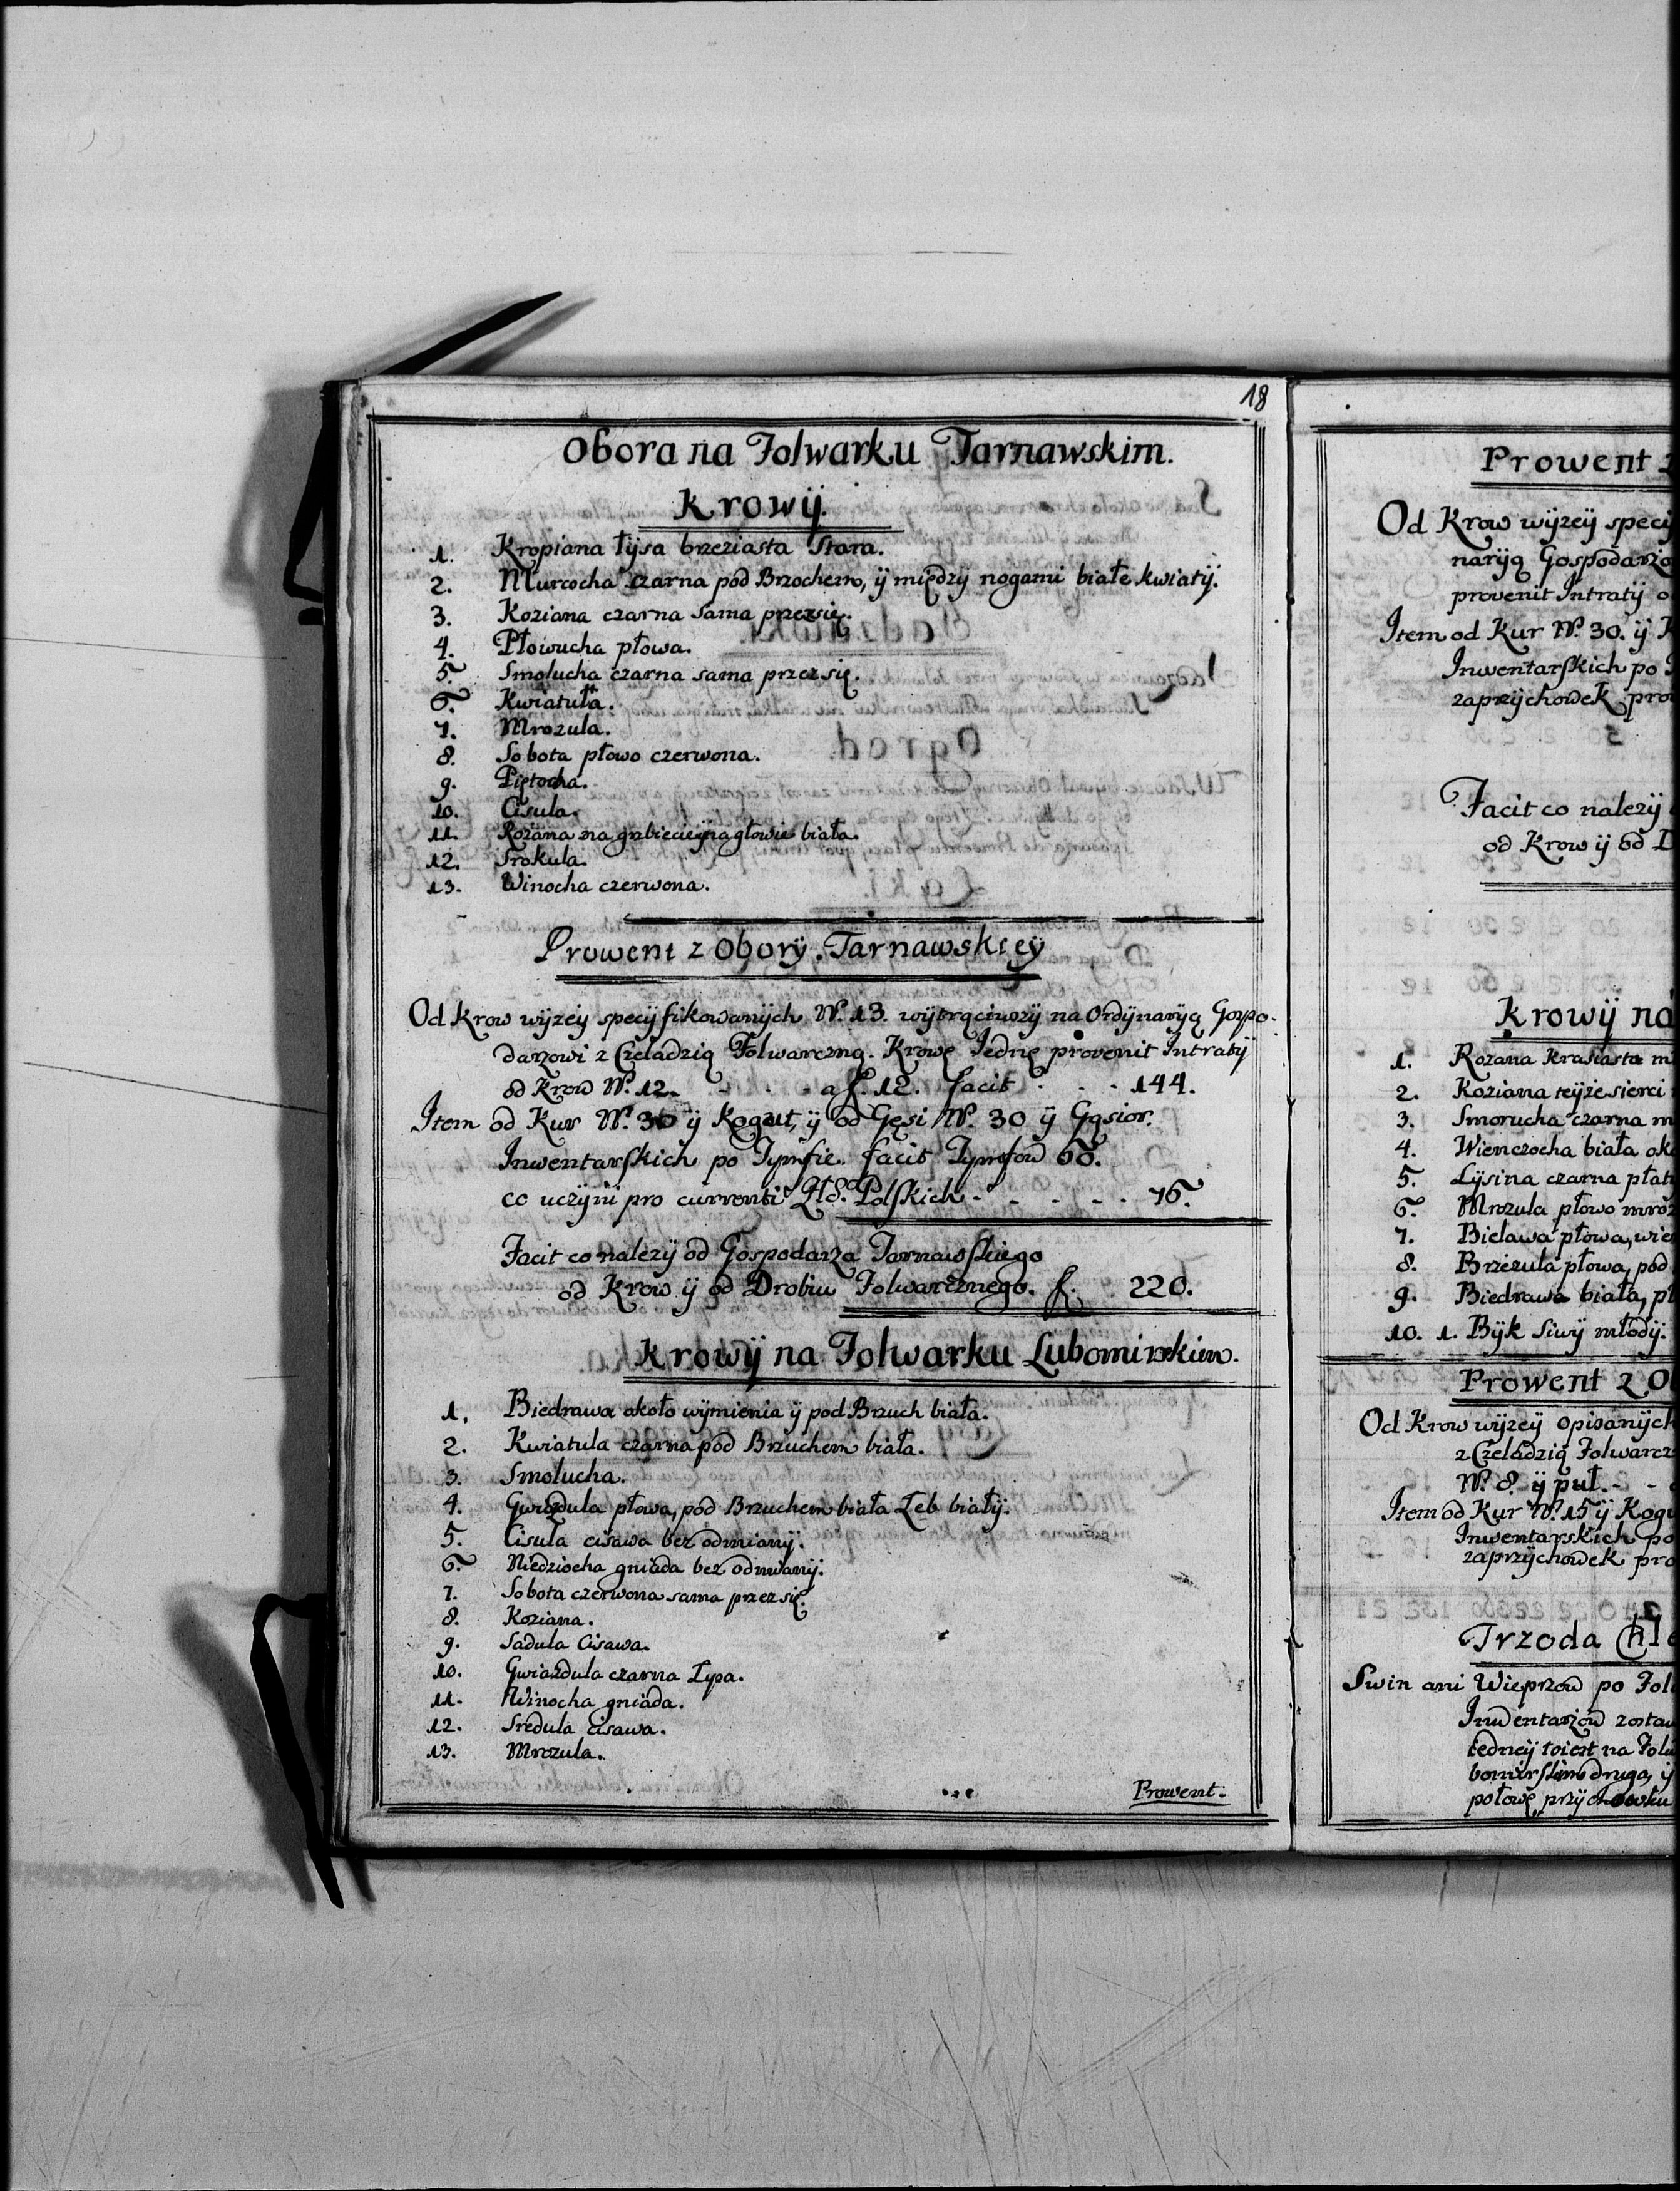 18
Obora na Folwarku Tarnawskim.
Krowÿ.
1. Kropiana łÿsa brzeziasta Stara.
2. Murcocha czarna pod Brzochem, ÿ międzÿ nogami białe kwiatÿ.
3. Koziana czarna Sama przezsię.
4. Płowucha płowa.
5. Smolucha czarna sama przezsię.
6. Kwiatuła.
7. Mrozula.
8. Sobota płowo czerwona.
9. Piętocha.
10. Cisula.
11. Rozana na grzbiecie ÿ na głowie biała.
12. Srokula.
13. Winocha czerwona.
Prowent z Oborÿ Tarnawskieÿ
Od Krow wÿzeÿ specÿfikowanÿch Nº. 13. wÿtrąciwszÿ na Ordÿnarÿą Gospo-
darzowi z Czeladzią Folwarczną. Krowę Jednę provenit Intratÿ
od Krow Nº. 12. - - - a f. 12. facit - - - 144.
Item od Kur Nº. 30 ÿ Kogut, ÿ od Gęsi Nº. 30 ÿ Gąsior.
Inwentarskich po Tymfie facit Tymfow 60.
co uczÿni pro currenti Zł: Polskich - - - - - 76.
Facit co nalezÿ od Gospodarza Tarnawskiego
od Krow ÿ od Drobiu Folwarcznego. f. 220.
Krowÿ na Folwarku Lubomirskim.
1. Biedrawa około wÿmienia ÿ pod Brzuch biała.
2. Kwiatula czarna pod Brzuchem biała.
3. Smolucha.
4. Gwizdula płowa, pod Brzuchem biała Łeb białÿ.
5. Cisula cisawa bez odmianÿ.
6. Niedziocha gniada bez odmianÿ.
7. Sobota czerwona sama przezsię.
8. Koziana.
9. Sadula Cisawa.
10. Gwiazdula czarna Łysa.
11. Winocha gniada.
12. Sredula cisawa.
13. Mrozula.
Prowent.
Prowent
Od Krow wÿzeÿ specÿ
narÿą Gospodarzo
provenit Intratÿ o
Item od Kur Nº. 30. ÿ K
Inwentarskich po
zaprzÿchowek pro
Facit co nalezÿ
od Krow ÿ od D
Krowÿ na
1. Rozana krasiasta m
2. Koziana teÿze sierci
3. Smorucha czarna m
4. Wienczocha biała oko
5. Lÿsina czarna płat
6. Mrozula płowo mroz
7. Bielawa płowa, wie
8. Brzezula płowa, pod
9. Biedrawa biała, pł
10. 1. Bÿk Siwÿ młodÿ.
Prowent z O
Od Krow wÿzeÿ opisanÿch
z Czeladzią Folwarcz
Nº. 8. ÿ puł. - -
Item od Kur Nº. 15 ÿ Kogu
Inwentarskich po
zaprzÿchowek pro
Trzoda Chle
Swin ani Wieprzow po Fol
Inwentarzow zostaw
iedneÿ toiest na Folw
bomirskim druga, ÿ
połowę przÿchowku